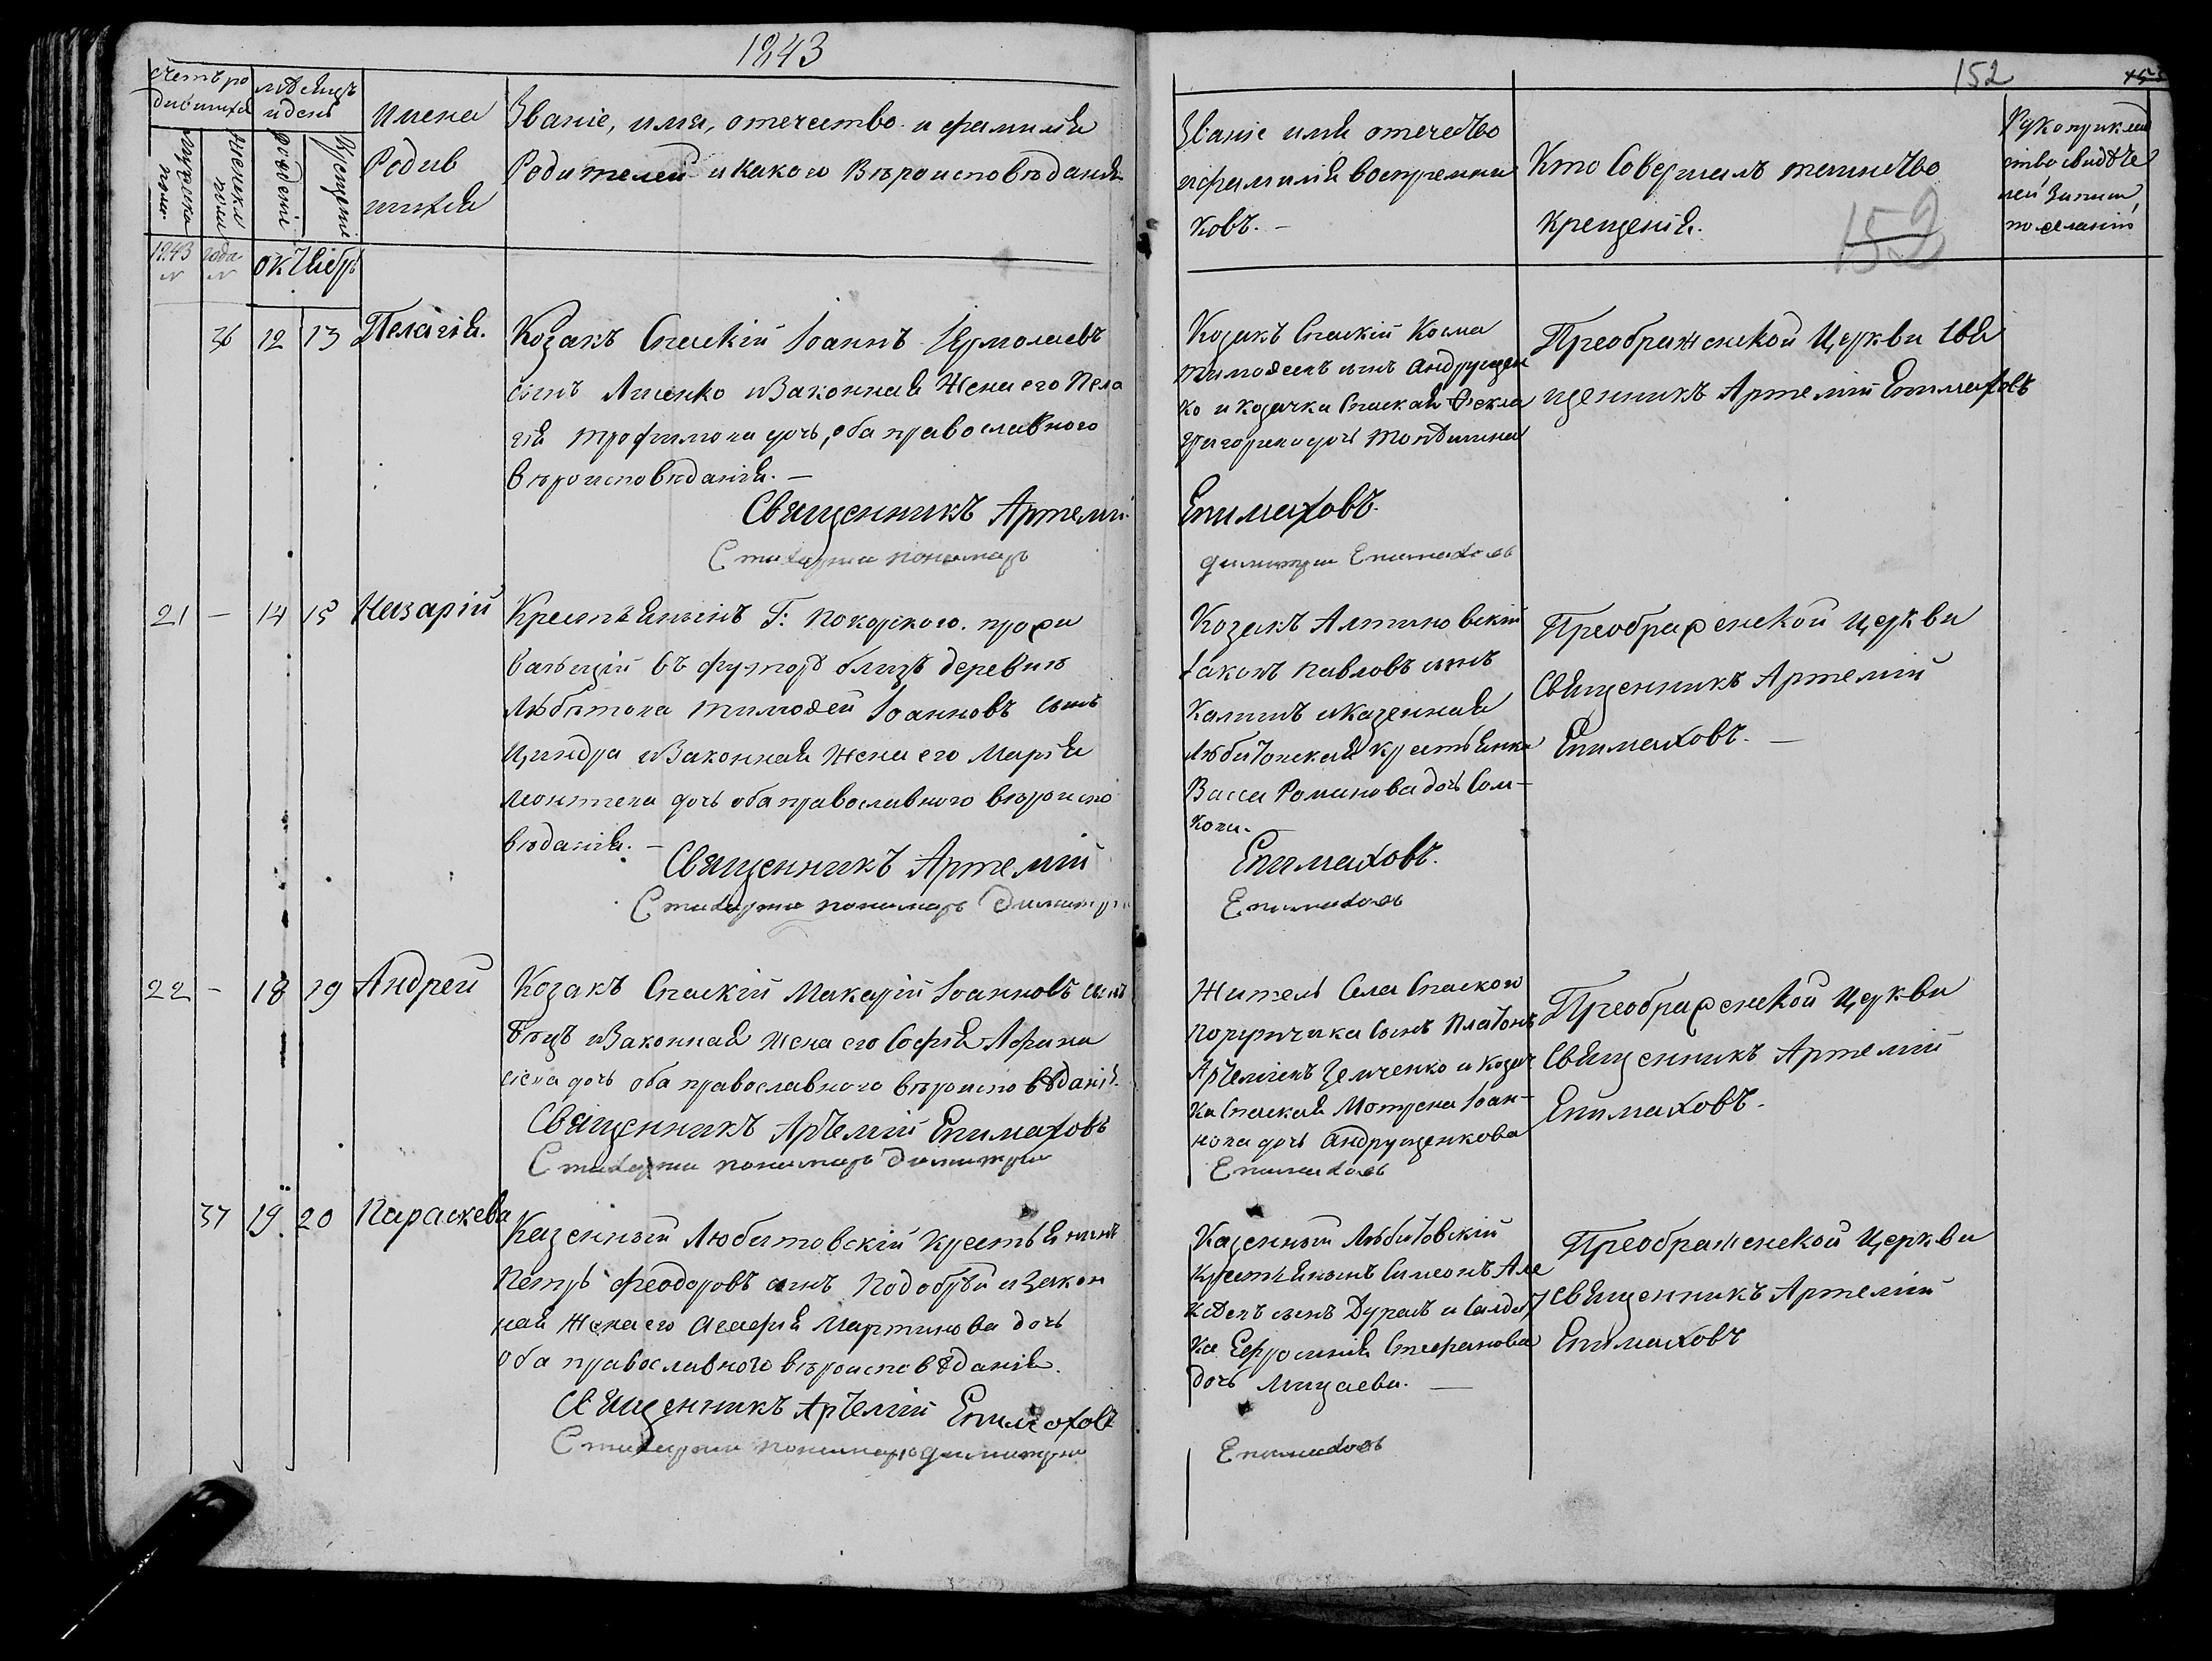 1843
152
Счетъ ро
дившихся
мѣсяцъ
и день
Мужеска
пола
Женска
пола
рожденіе
Крещеніе
Имена
Родив
шихся
Званіе, имя, отечество и фамилія
Родителей и какого Вѣроисповѣданія
Званіе имя отечество
и фамилія воспремни
ковъ. –
Кто Совершалъ таинство
Крещенія.
152
Рукоприклад
ство свидѣте
лей Записи
по желанію
1843 года
октябрь
36 12 13 Пелагія.
Козакъ Спаскій Іоаннъ Ермолаевъ
сынъ Лисенко и Законная Жена его Пела
гія Трофимова дочь, оба православного
вѣроисповѣданія. –
Священникъ Артемій
Стихарни пономарь
Козакъ Спаскій Косма
Тимофеевъ сынъ Андрущен
ко и козачка Спаская Фекла
Григориева дочь
Епимаховъ.
Димитри Епимаховъ
Преображенской Церкви Свя
щенникъ Артемій Епимаховъ
21 – 14 15 Назарій
Крестьянинъ Г: Покорского. прожи
вающій въ футорѣ близъ деревни
Любитова Тимофей Іоанновъ сынъ
Циндра и Законная Жена его Марія
Леонтиева дочь оба православного вѣроиспо
вѣданія. –
Священникъ Артемій
Стихарни пономарь Димитри
Козакъ Алтиновскій
Іаковъ Павловъ сынъ
Калишъ и Казенная
Любитовская крестьянка
Васса Романова дочь Сом-
кова.
Епимаховъ.
Епимаховъ
Преображенской Церкви
Священникъ Артемій
Епимаховъ. –
22 – 18 19 Андрей
Козакъ Спаскій Макарій Іоанновъ сынъ
и Законная Жена его Софія Афана
сиева дочь оба православного вѣроисповѣданія
Священникъ Артемій Епимаховъ
Стихарни пономарь Димитри
Житель Села Спаского
порутчика Сынъ Платонъ
Артеміевъ Земченко и козач
ка Спаская Мотрена Іоан-
нова дочь Андрущенкова
Епимаховъ
Преображенской Церкви
Священникъ Артемій
Епимаховъ.
37 19 20 Параскева
Казенный Любитовскій Крестьянинъ
Петръ Феодоровъ сынъ Подобрѣй и Закон
ная Жена его Агафія Мартинова дочь
оба православного вѣроисповѣданія.
Священникъ Артемій Епимаховъ
Стихарни пономарь Димитри
Казенный Любитовскій
Крестьянинъ Симеонъ Але
ксѣевъ сынъ Дуралъ и Салдат
ка Ефросинія Стефанова
дочь
Епимаховъ
Преображенской Церкви
Священникъ Артемій
Епимаховъ